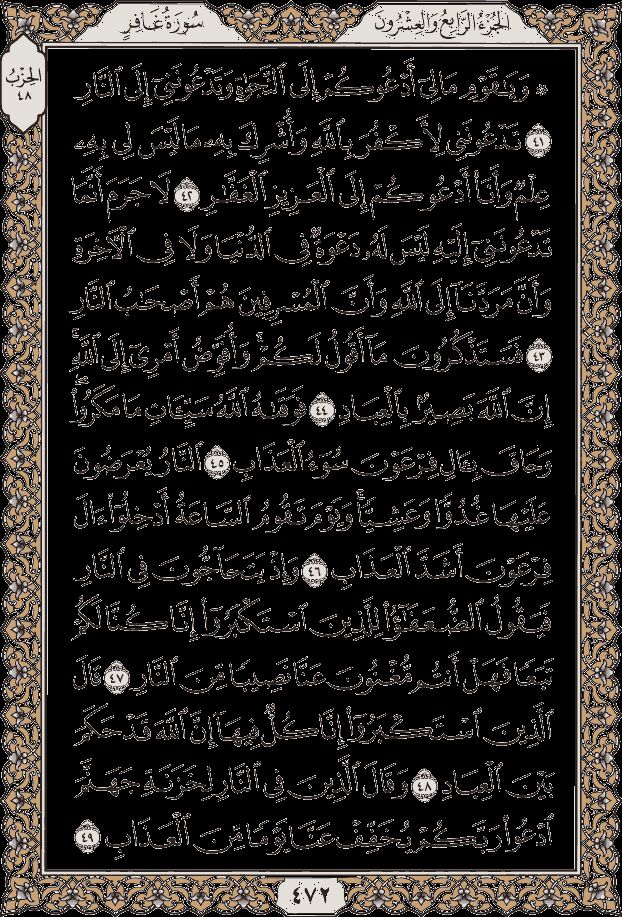 الجزء الرابع والعشرون
سورة غافر
الحزب
٤٨
۞ وَيَٰقَوۡمِ مَالِيٓ أَدۡعُوكُمۡ إِلَى ٱلنَّجَوٰةِ وَتَدۡعُونَنِيٓ إِلَى ٱلنَّارِ
٤١ تَدۡعُونَنِي لِأَكۡفُرَ بِٱللَّهِ وَأُشۡرِكَ بِهِۦ مَا لَيۡسَ لِي بِهِۦ
عِلۡمٞ وَأَنَا۠ أَدۡعُوكُمۡ إِلَى ٱلۡعَزِيزِ ٱلۡغَفَّٰرِ ٤٢ لَا جَرَمَ أَنَّمَا
تَدۡعُونَنِيٓ إِلَيۡهِ لَيۡسَ لَهُۥ دَعۡوَةٞ فِي ٱلدُّنۡيَا وَلَا فِي ٱلۡأٓخِرَةِ
وَأَنَّ مَرَدَّنَآ إِلَى ٱللَّهِ وَأَنَّ ٱلۡمُسۡرِفِينَ هُمۡ أَصۡحَٰبُ ٱلنَّارِ
٤٣ فَسَتَذۡكُرُونَ مَآ أَقُولُ لَكُمۡۚ وَأُفَوِّضُ أَمۡرِيٓ إِلَى ٱللَّهِۚ
إِنَّ ٱللَّهَ بَصِيرُۢ بِٱلۡعِبَادِ ٤٤ فَوَقَىٰهُ ٱللَّهُ سَيِّـَٔاتِ مَا مَكَرُواْۖ
وَحَاقَ بِـَٔالِ فِرۡعَوۡنَ سُوٓءُ ٱلۡعَذَابِ ٤٥ ٱلنَّارُ يُعۡرَضُونَ
عَلَيۡهَا غُدُوّٗا وَعَشِيّٗاۚ وَيَوۡمَ تَقُومُ ٱلسَّاعَةُ أَدۡخِلُوٓاْ ءَالَ
فِرۡعَوۡنَ أَشَدَّ ٱلۡعَذَابِ ٤٦ وَإِذۡ يَتَحَآجُّونَ فِي ٱلنَّارِ
فَيَقُولُ ٱلضُّعَفَٰٓؤُاْ لِلَّذِينَ ٱسۡتَكۡبَرُوٓاْ إِنَّا كُنَّا لَكُمۡ
تَبَعٗا فَهَلۡ أَنتُم مُّغۡنُونَ عَنَّا نَصِيبٗا مِّنَ ٱلنَّارِ ٤٧ قَالَ
ٱلَّذِينَ ٱسۡتَكۡبَرُوٓاْ إِنَّا كُلّٞ فِيهَآ إِنَّ ٱللَّهَ قَدۡ حَكَمَ
بَيۡنَ ٱلۡعِبَادِ ٤٨ وَقَالَ ٱلَّذِينَ فِي ٱلنَّارِ لِخَزَنَةِ جَهَنَّمَ
ٱدۡعُواْ رَبَّكُمۡ يُخَفِّفۡ عَنَّا يَوۡمٗا مِّنَ ٱلۡعَذَابِ ٤٩
٤٧٢